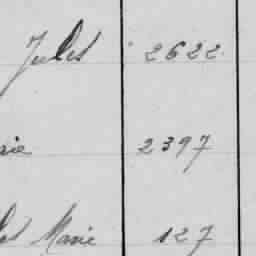 Jules 2622
2397
Marie 127